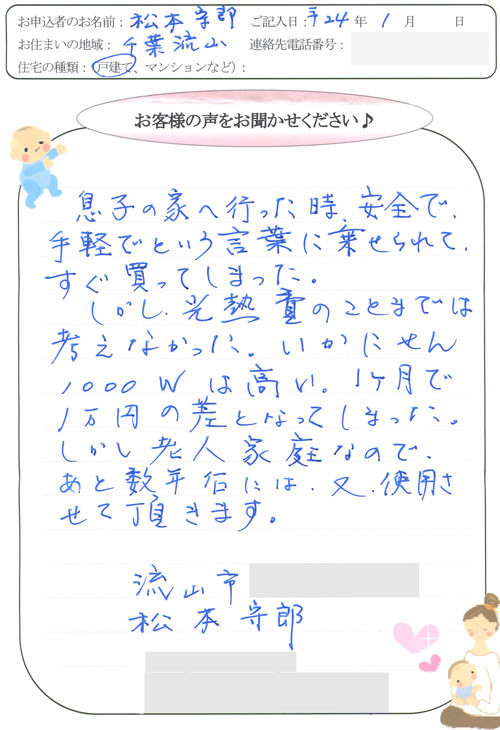 お申込者のお名前：松本守郎 ご記入日：平24年1月 日
お住まいの地域：千葉流山 連絡先電話番号：
住宅の種類：(戸建て、マンションなど)：
お客様の声をお聞かせください♪
息子の家へ行った時、安全で、
手軽でという言葉に乗せられて、
すぐ買ってしまった。
しかし、光熱費のことまでは
考えなかった。いかにせん
1000Wは高い。1ヶ月で
1万円の差となってしまった。
しかし老人家庭なので、
あと数年后には、又、使用さ
せて頂きます。
流山市
松本守郎